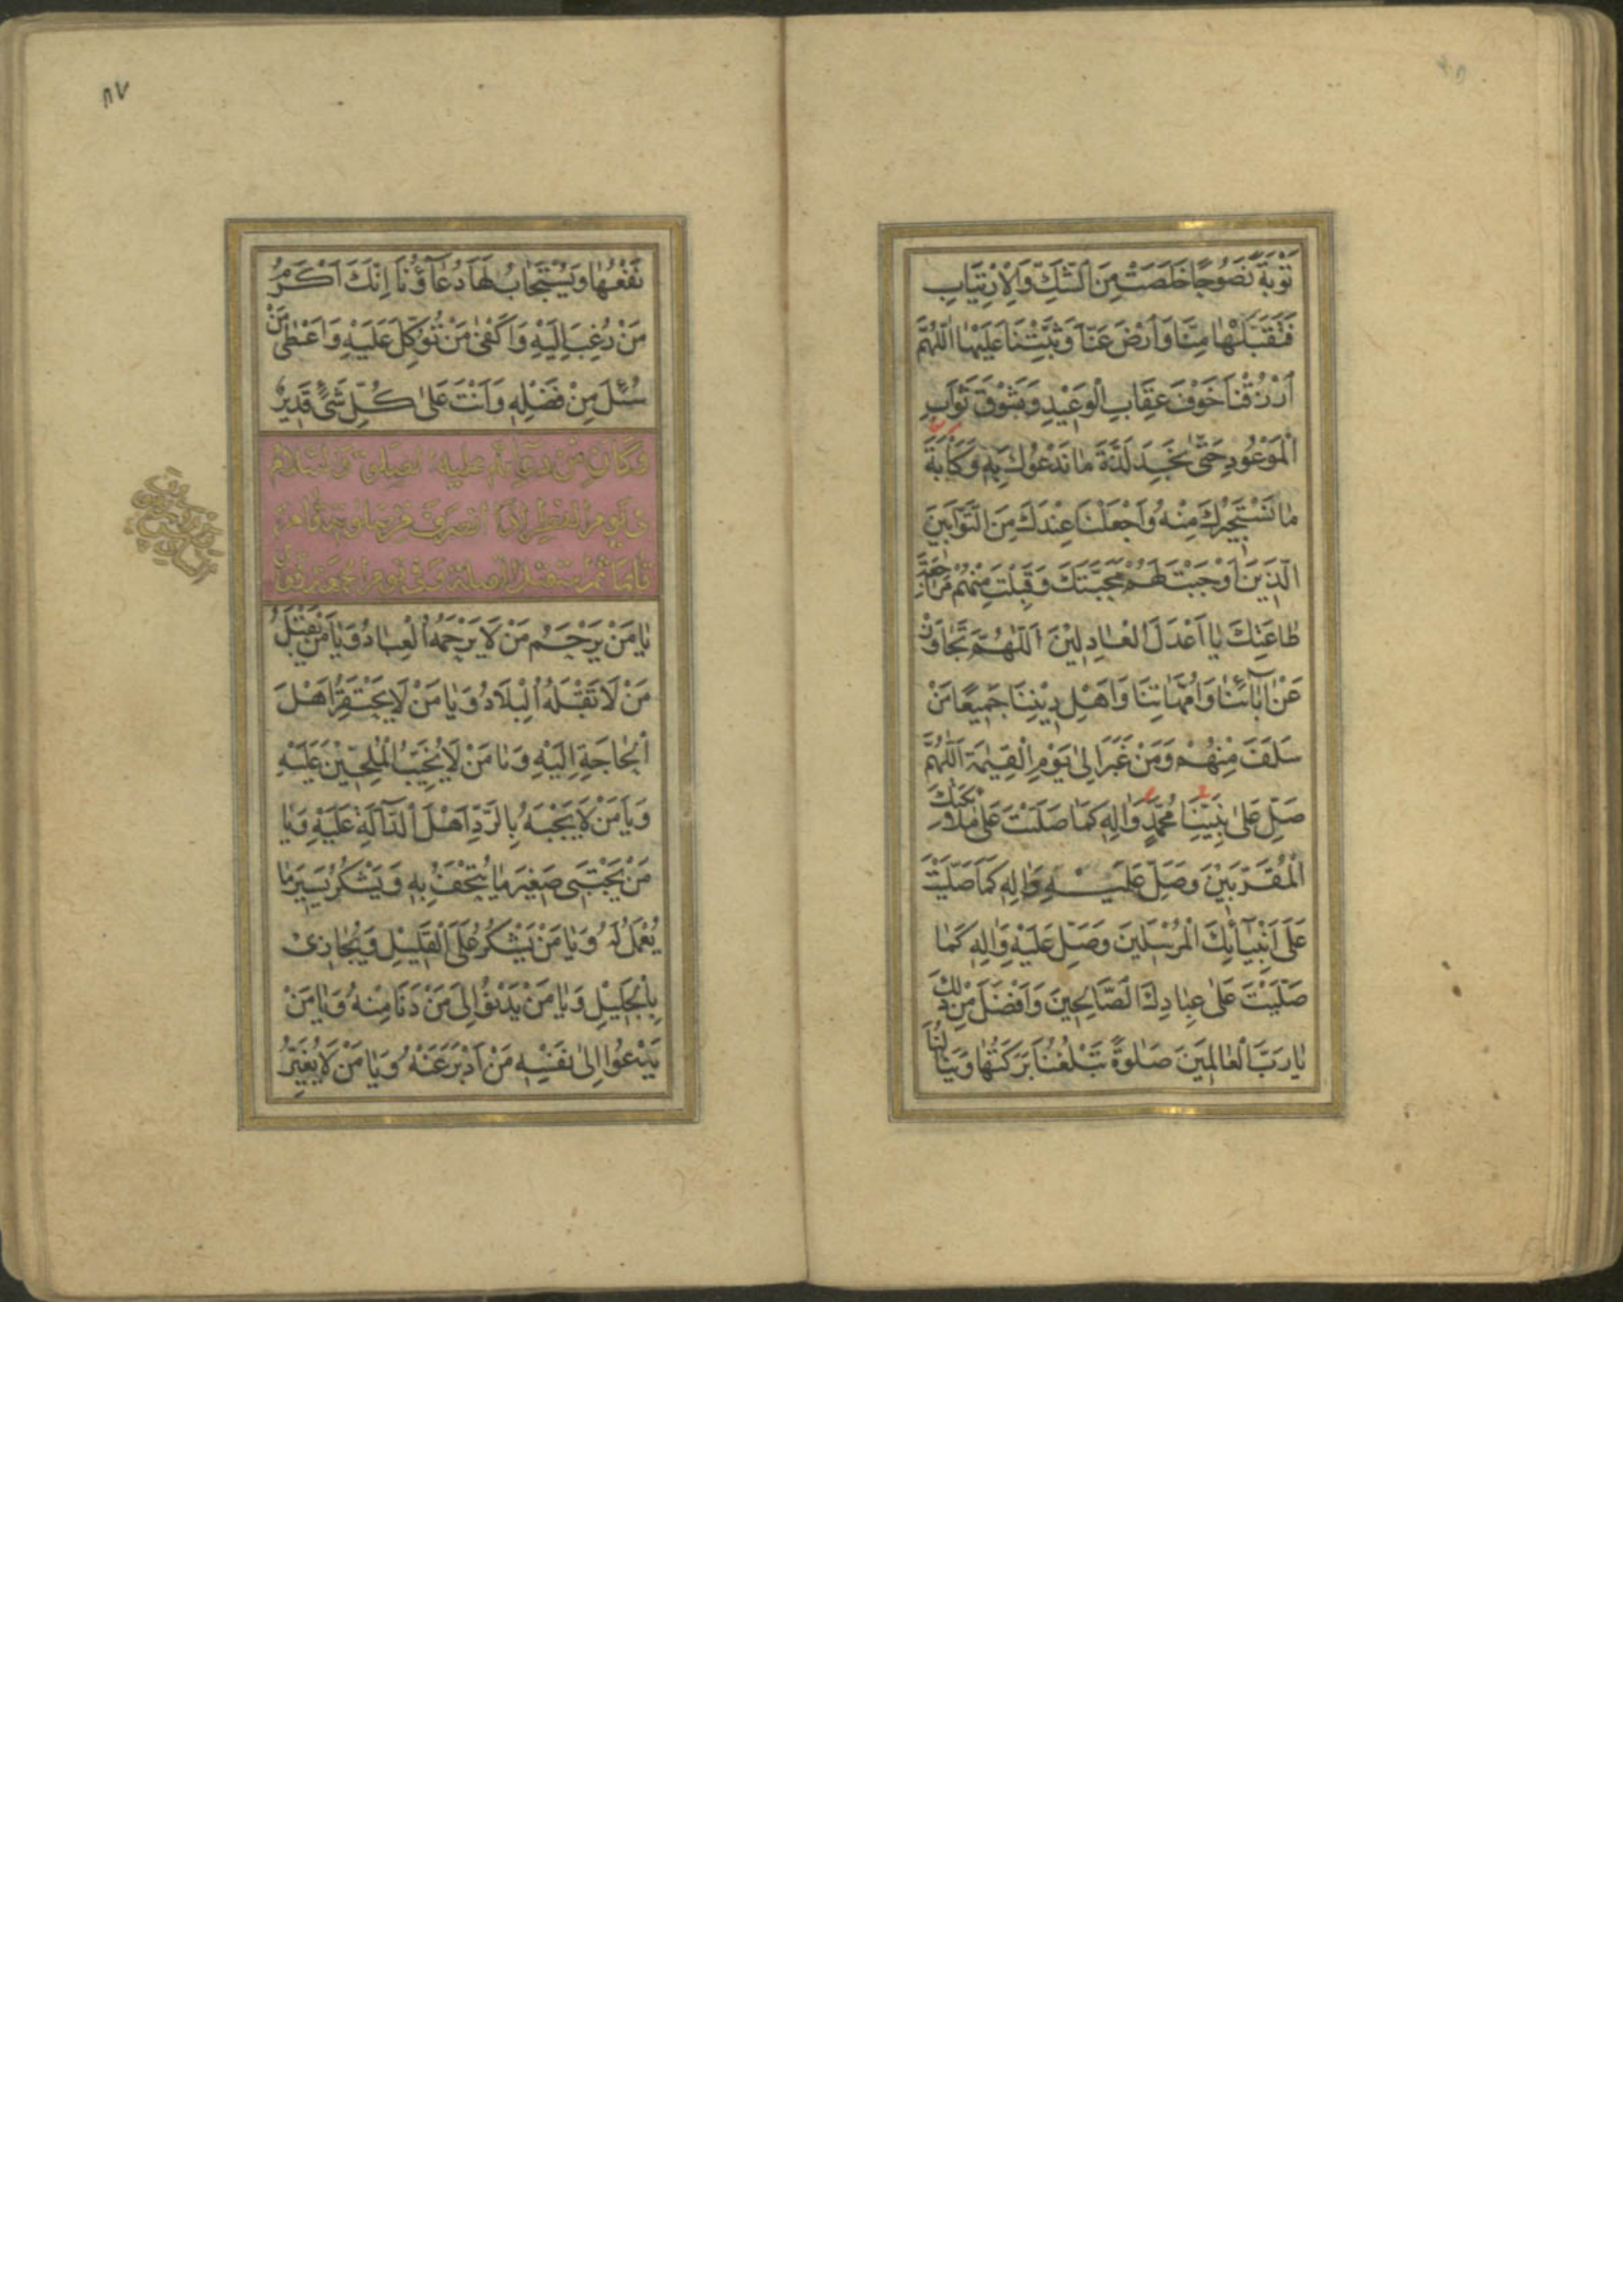 تَوْبَةً نَصُوحًا خَلَصَتْ مِنَ الشَّكِّ وَالْاِرْتِيَابِ
فَتَقَبَّلْهَا مِنَّا وَارْضَ عَنَّا وَثَبِّتْنَا عَلَيْهَا اَللّٰهُمَّ
ارْزُقْنَا خَوْفَ عِقَابِ الْوَعِيْدِ وَشَوْقَ ثَوَابِ
الْمَوْعُودِ حَتّٰى نَجِدَ لَذَّةَ مَا نَدْعُوْكَ بِهِ وَكَاٰبَةَ
مَا نَسْتَجِيْرُكَ مِنْهُ وَاجْعَلْنَا عِنْدَكَ مِنَ التَّوَّابِيْنَ
الَّذِيْنَ اَوْجَبْتَ لَهُمْ مَحَبَّتَكَ وَقَبِلْتَ مِنْهُمْ مُرَاجَعَةَ
طَاعَتِكَ يَا اَعْدَلَ الْعَادِلِيْنَ اَللّٰهُمَّ تَجَاوَزْ
عَنْ اٰبَائِنَا وَاُمَّهَاتِنَا وَاَهْلِ دِيْنِنَا جَمِيْعًا مَنْ
سَلَفَ مِنْهُمْ وَمَنْ غَبَرَ اِلٰى يَوْمِ الْقِيٰمَةِ اَللّٰهُمَّ
صَلِّ عَلٰى نَبِيِّنَا مُحَمَّدٍ وَاٰلِهِ كَمَا صَلَّيْتَ عَلٰى مَلَائِكَتِكَ
الْمُقَرَّبِيْنَ وَصَلِّ عَلَيْهِ وَاٰلِهِ كَمَا صَلَّيْتَ
عَلٰى اَنْبِيَائِكَ الْمُرْسَلِيْنَ وَصَلِّ عَلَيْهِ وَاٰلِهِ كَمَا
صَلَّيْتَ عَلٰى عِبَادِكَ الصَّالِحِيْنَ وَاَفْضَلَ مِنْ ذٰلِكَ
يَا رَبَّ الْعَالَمِيْنَ صَلٰوةً تَبْلُغُنَا بَرَكَتُهَا وَيَنَالُنَا
٨٧
نَفْعُهَا وَيُسْتَجَابُ لَهَا دُعَاؤُنَا اِنَّكَ اَكْرَمُ
مَنْ رُغِبَ اِلَيْهِ وَاَكْفٰى مَنْ تُوُكِّلَ عَلَيْهِ وَاَعْطٰى مَنْ
سُئِلَ مِنْ فَضْلِهِ وَاَنْتَ عَلٰى كُلِّ شَيْءٍ قَدِيْرٌ
وَكَانَ مِنْ دُعَائِهِ عَلَيْهِ الصَّلٰوةُ وَالسَّلَامُ
فِي يَوْمِ الْفِطْرِ اِذَا انْصَرَفَ مِنْ صَلٰوتِهِ قَامَ
قَائِمًا ثُمَّ اسْتَقْبَلَ الْقِبْلَةَ وَفِي يَوْمِ الْجُمُعَةِ فَقَالَ
يَا مَنْ يَرْحَمُ مَنْ لَا يَرْحَمُهُ الْعِبَادُ وَيَا مَنْ يَقْبَلُ
مَنْ لَا تَقْبَلُهُ الْبِلَادُ وَيَا مَنْ لَا يَحْتَقِرُ اَهْلَ
الْحَاجَةِ اِلَيْهِ وَيَا مَنْ لَا يُخَيِّبُ الْمُلِحِّيْنَ عَلَيْهِ
وَيَا مَنْ لَا يَجْبَهُ بِالرَّدِّ اَهْلَ الدَّالَّةِ عَلَيْهِ وَيَا
مَنْ يَجْتَبِي صَغِيْرَ مَا يُتْحَفُ بِهِ وَيَشْكُرُ يَسِيْرَ مَا
يُعْمَلُ لَهُ وَيَا مَنْ يَشْكُرُ عَلَى الْقَلِيْلِ وَيُجَازِيْ
بِالْجَلِيْلِ وَيَا مَنْ يَدْنُوْ اِلٰى مَنْ دَنَا مِنْهُ وَيَا مَنْ
يَدْعُوْا اِلٰى نَفْسِهِ مَنْ اَدْبَرَ عَنْهُ وَيَا مَنْ لَا يُغَيِّرُ